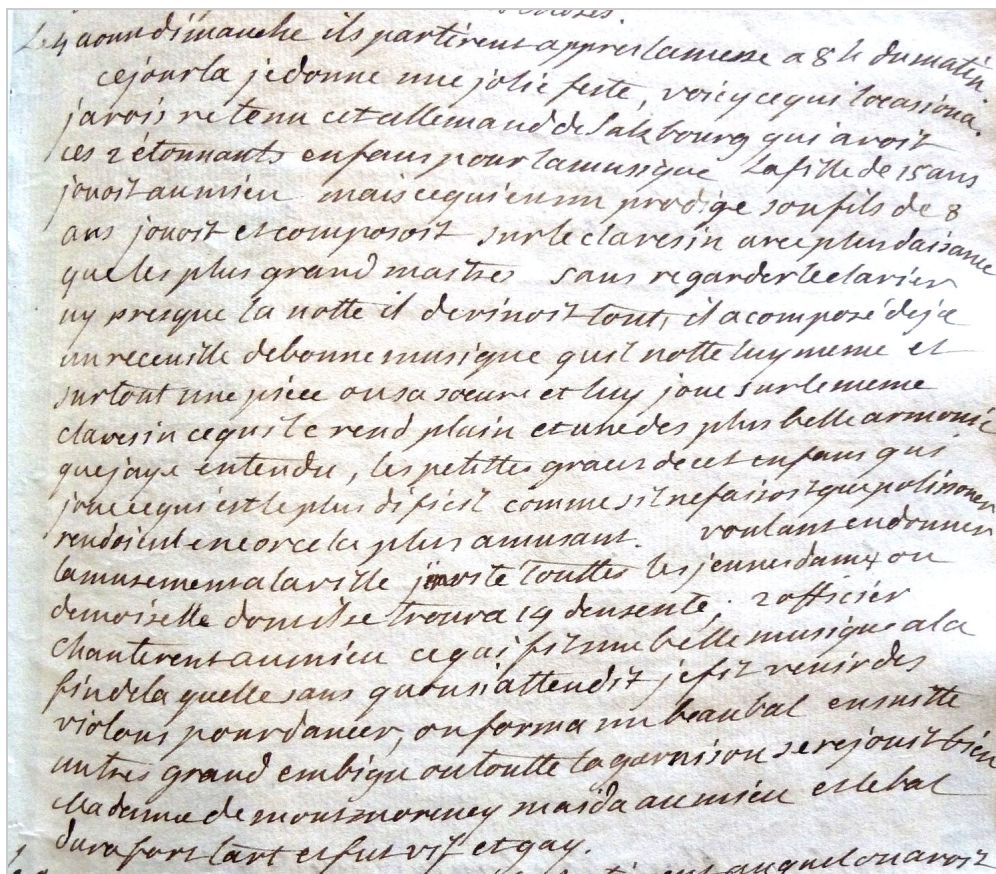 Le 4 aoust dimanche ils partirent appres la messe a 8 h du matin.
ce jour la je donne une jolie feste, voicy ce qui l'ocasiona.
j'avois retenu cet allemand de Salzbourg qui avoit
ces 2 étonnants enfans pour la musique La fille de 15 ans
jouoit au mieu mais ce qui est un prodige son fils de 8
ans jouoit et composoit sur le clavesin avec plus daisance
que les plus grand maitres sans regarder le clavier
ny presque la notte il devinoit tout, il a composé déja
un receuille de bonne musique quil notte luy meme et
surtout une piece ou sa soeure et luy joue sur le meme
clavesin ce qui le rend plain et une des plus belle armonie
que jaye entendu, les petittes graces de cet enfant qui
joue ce qui est le plus dificil comme sil ne faisoit que polissoner
rendoient encore cela plus amusant. voulant en donner
lamusement a la ville jinvite touttes les jeunes dames ou
demoiselle dont il se trouva 14 densente; 2 officier
chanterent au mieu ce qui fit une belle musique a la
fin de la quelle sans quon si attendit je fit venir des
violons pour dancer, on forma un beau bal ensuitte
un tres grand embigu ou toutte la garnison se rejouit bien
Madame de montmorency maida au mieu et le bal
dura fort tart et fut vif et gay.
auquel on avoit